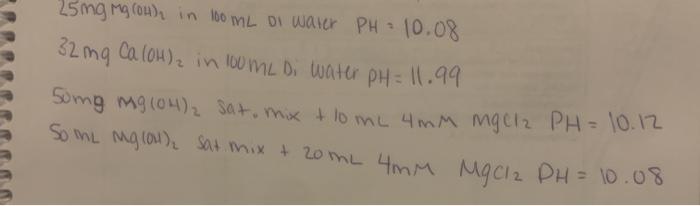 25mg Mg(OH)₂ in 100mL DI water PH = 10.08
32mg Ca(OH)₂ in 100mL Di Water pH = 11.99
50mg Mg(OH)₂ sat. mix + 10 mL 4mM MgCl2 PH = 10.12
50 mL Mg(OH)₂ sat mix + 20mL 4mM MgCl2 PH = 10.08